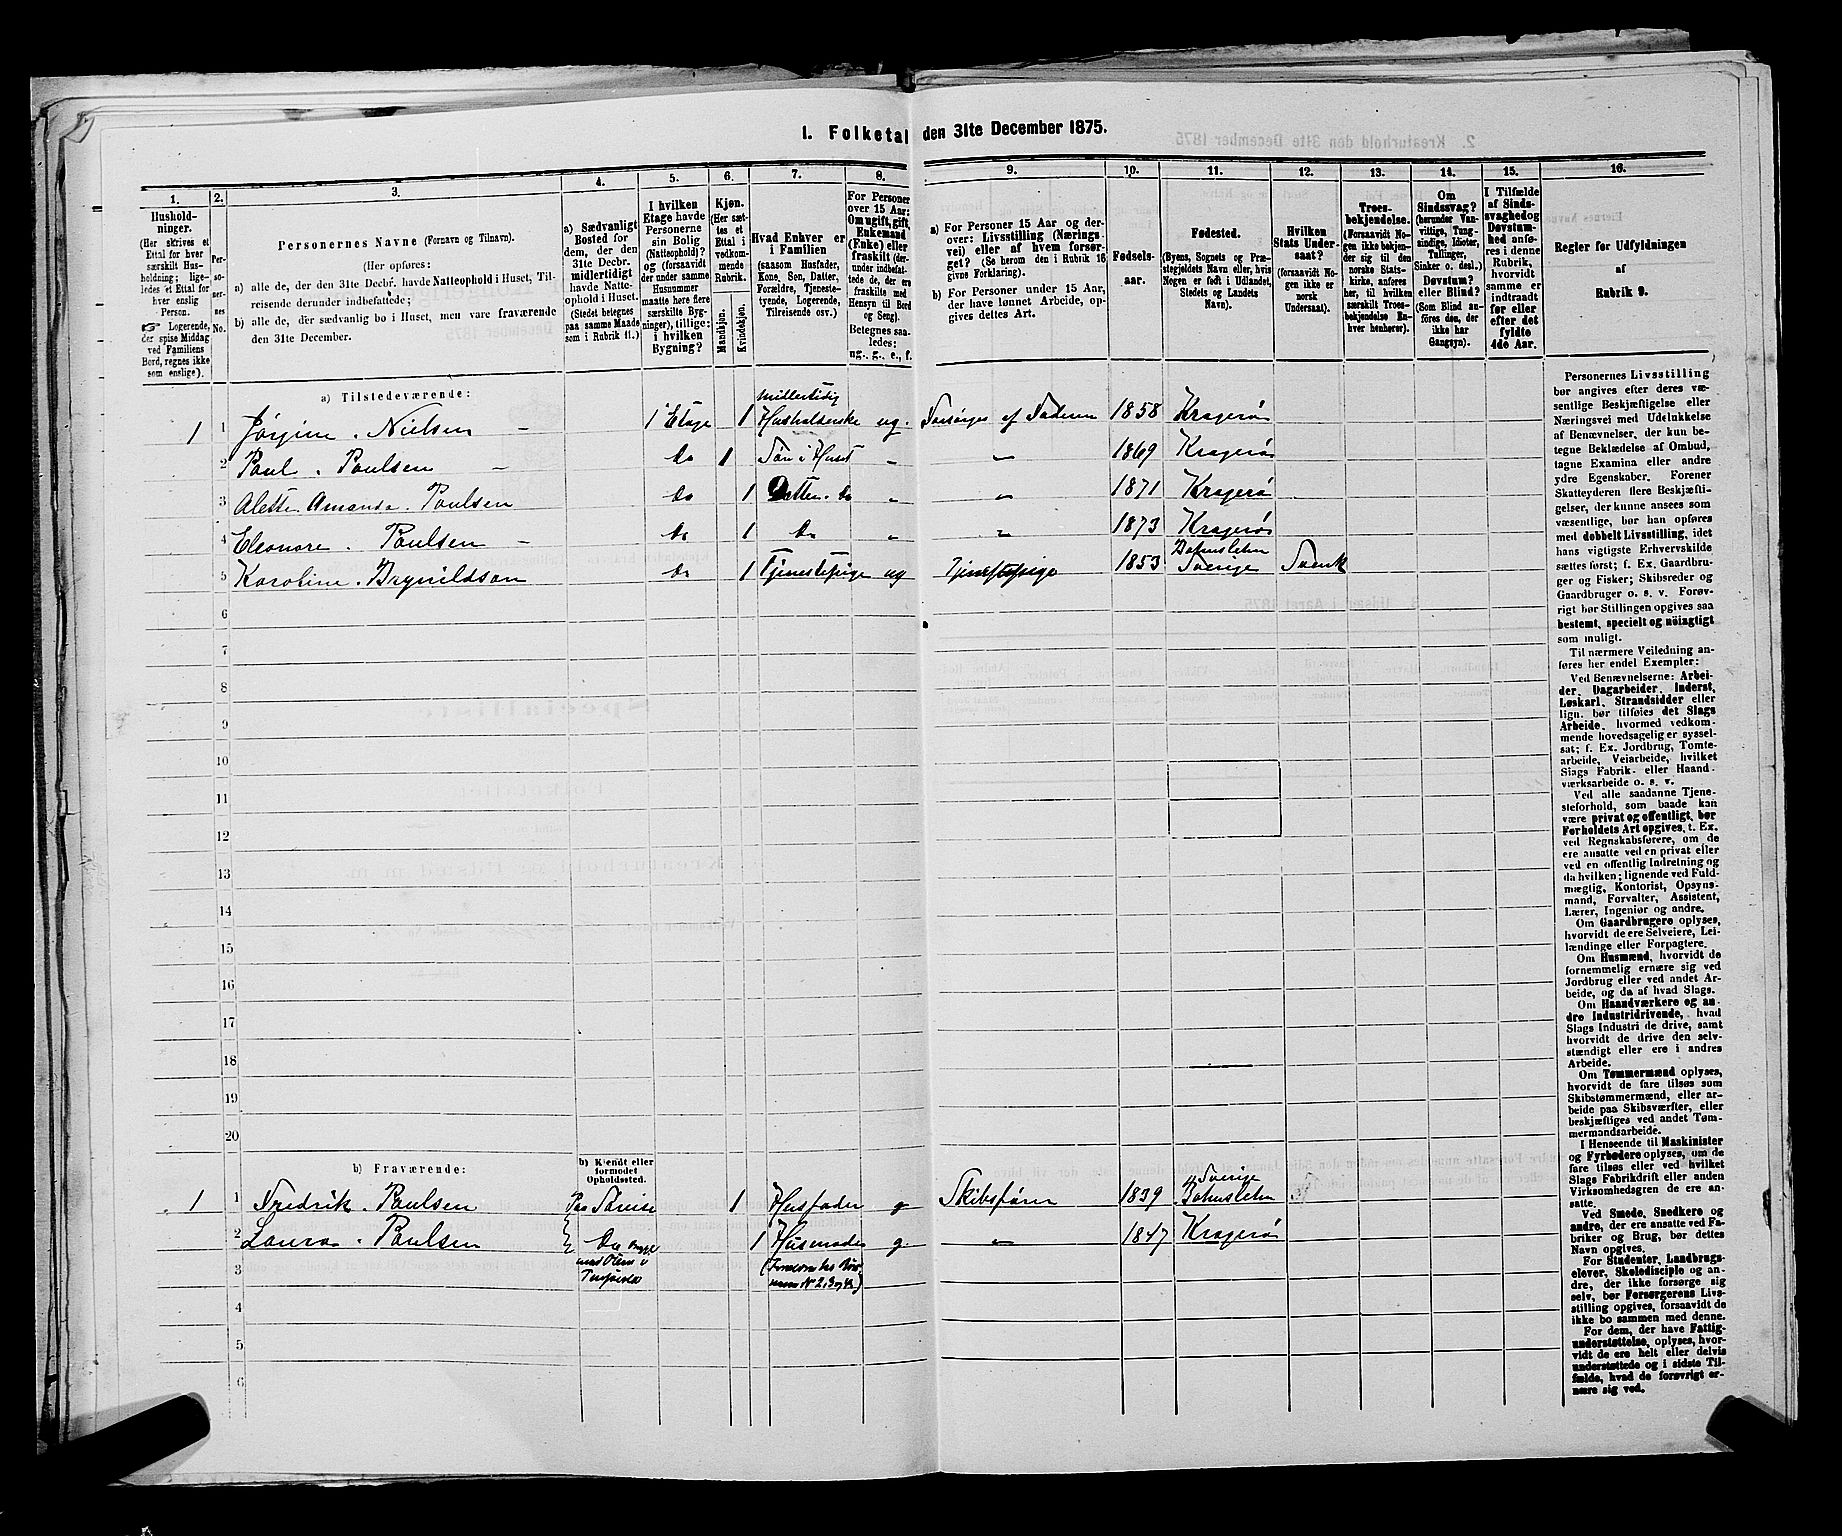 1. Folketal den 31te December 1875.
1.
Hushold-
ninger.
(Her skrives et
Ettal for hver
særskilt Hus-
holdning; lige-
ledes et Ettal for
hver enslig
Person.
☞ Logerende,
der spise Middag
ved Familiens
Bord, regnes ikke
som enslige).
2.
Per-
so-
ner-
nes
No.
3.
Personernes Navne (Fornavn og Tilnavn).
(Her opføres:
a) alle de, der den 31te Decbr. havde Natteophold i Huset, Til-
reisende derunder indbefattede;
b) alle de, der sædvanlig bo i Huset, men vare fraværende
den 31te December.
4.
a) Sædvanligt
Bosted for
dem, der den
31te Decbr.
midlertidigt
havde Natte-
ophold i Huset.
(Stedet betegnes
paa samme Maade
som i Rubrik 11.)
5.
I hvilken
Etage havde
Personerne
sin Bolig
(Natteophold)?
og (forsaavidt
der under samme
Husnummer
maatte høre flere
særskilte Byg-
ninger), tillige:
i hvilken
Bygning?
6.
Kjøn.
(Her sæt-
tes et
Ettal i
vedkom-
mende
Rubrik.
Mandkjøn.
Kvindekjøn.
7.
Hvad Enhver er
i Familien
(saasom Husfader,
Kone, Søn, Datter,
Forældre, Tjeneste-
tyende, Logerende,
Tilreisende osv.)
8.
For Personer
over 15 Aar:
Om ugift, gift,
Enkemand
(Enke) eller
fraskilt (der-
under indbefat-
tede de, der ere
fraskilte med
Hensyn til Bord
og Seng).
Betegnes saa-
ledes:
ug., g., e., f.
9.
a) For Personer 15 Aar og der-
over: Livsstilling (Nærings-
vei) eller af hvem forsør-
get? (Se herom den i Rubrik 16
givne Forklaring).
b) For Personer under 15 Aar,
der have lønnet Arbeide, op-
gives dettes Art.
10.
Fødsels-
aar.
11.
Fødested.
(Byens, Sognets og Præ-
stegjeldets Navn eller, hvis
Nogen er født i Udlandet,
Stedets og Landets
Navn).
12.
Hvilken
Stats Under-
saat?
(forsaavidt No-
gen ikke er
norsk
Undersaat).
13.
Troes-
bekjendelse.
(Forsaavidt No-
gen ikke bekjen-
der sig til den
norske Stats-
kirke, anføres
her, til hvilken
særskilt Troes-
bekjendelse En-
hver henhører).
14.
Om
Sindssvag?
(herunder Van-
vittige, Tung-
sindige, Idioter,
Tullinger,
Sinker o. desl.)
Døvstum?
eller Blind?
(Som Blind an-
føres den, der
ikke har
Gangsyn).
15.
I Tilfælde
af Sinds-
svaghed og
Døvstum-
hed anfø-
res i denne
Rubrik,
hvorvidt
samme er
indtraadt
før eller
efter det
fyldte
4de Aar.
16.
Regler for Udfyldningen
af
Rubrik 9.
a) Tilstedeværende:
1 1 Jørgine Nielsen - 1 Etage 1 midlertidig Husholderske ug. Forsørges af Faderen 1858 Kragerø
2 Paul Paulsen - Do 1 Søn i Huset - " 1869 Kragerø
3 Alette Amanda Paulsen Do 1 Datter Do " " 1871 Kragerø
4 Eleonore Paulsen - Do 1 Do " " 1873 Kragerø
5 Karoline Brynildsen Do 1 Tjenestepige ug Tjenestepige 1853 Bohuslehn Sverige Svensk
6
7
8
9
10
11
12
13
14
15
16
17
18
19
20
b) Fraværende:
b) Kjendt eller
formodet
Opholdssted.
1 1 Fredrik Paulsen Paa 1 Husfader g Skibsfører 1839 Sverige Bohuslehn
2 Laura Paulsen Do 1 Husmoder g. " 1847 Kragerø
3
4
5
6
Personernes Livsstilling
bør angives efter deres væ-
sentlige Beskjæftigelse eller
Næringsvei med Udelukkelse
af Benævnelser, der kun be-
tegne Beklædelse af Ombud,
tagne Examina eller andre
ydre Egenskaber. Forener
Skatteyderen flere Beskjæfti-
gelser, der kunne ansees som
væsentlige, bør han opføres
med dobbelt Livsstilling, idet
hans vigtigste Erhvervskilde
sættes først; f. Ex. Gaardbru-
ger og Fisker; Skibsreder og
Gaardbruger o. s. v. Forøv-
rigt bør Stillingen opgives saa
bestemt, specielt og nøiagtigt
som muligt.
Til nærmere Veiledning an-
føres her endel Exempler:
Ved Benævnelserne: Arbei-
der, Dagarbeider, Inderst,
Løskarl, Strandsidder eller
lign. bør tilføies det Slags
Arbeide, hvormed vedkom-
mende hovedsagelig er syssel-
sat; f. Ex. Jordbrug, Tomte-
arbeide, Veiarbeide, hvilket
Slags Fabrik- eller Haand-
værksarbeide o. s. v.
Ved alle saadanne Tjene-
steforhold, som baade kan
være privat og offentligt, bør
Forholdets Art opgives, t. Ex.
ved Regnskabsførere, om de
ere ansatte ved en privat eller
ved en offentlig Indretning og
da hvilken; lignende ved Fuld-
mægtig, Kontorist, Opsyns-
mand, Forvalter, Assistent,
Lærer, Ingeniør og andre.
Om Gaardbrugere oplyses,
hvorvidt de ere Selveiere, Lei-
lændinge eller Forpagtere.
Om Husmænd, hvorvidt de
fornemmelig ernære sig ved
Jordbrug eller ved andet Ar-
beide, og da af hvad Slags.
Om Haandværkere og an-
dre Industridrivende, hvad
Slags Industri de drive, samt
hvorvidt de drive den selv-
stændigt eller ere i andres
Arbeide.
Om Tømmermænd oplyses,
hvorvidt de fare tilsøs som
Skibstømmermænd, eller ar-
beide paa Skibsværfter, eller
beskjæftiges ved andet Tøm-
mermandsarbeide.
I Henseende til Maskinister
og Fyrbødere oplyses, om de
fare tilsøs eller ved hvilket
Slags Fabrikdrift eller anden
Virksomhedsgren de ere an-
satte.
Ved Smede, Snedkere og
andre, der ere ansatte ved Fa-
briker og Brug, bør dettes
Navn opgives.
For Studenter, Landbrugs-
elever, Skoledisciple og an-
dre, der ikke forsørge sig
selv, bør Forsørgerens Livs-
stilling opgives, forsaavidt de
ikke bo sammen med denne.
For dem, der have Fattig-
understøttelse, oplyses, hvor-
vidt de ere helt eller delvis
understøttede og i sidste Til-
fælde, hvad de forøvrigt er-
nære sig ved.